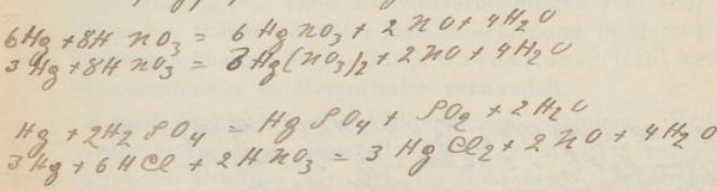 6Hg + 8H NO3 = 6 Hg NO3 + 2 NO + 4H2O
3 Hg + 8H NO3 = 3 Hg(NO3)2 + 2 NO + 4H2O
Hg + 2H2 SO4 = Hg SO4 + SO2 + 2H2O
3 Hg + 6 HCl + 2H NO3 = 3 Hg Cl2 + 2 NO + 4H2O